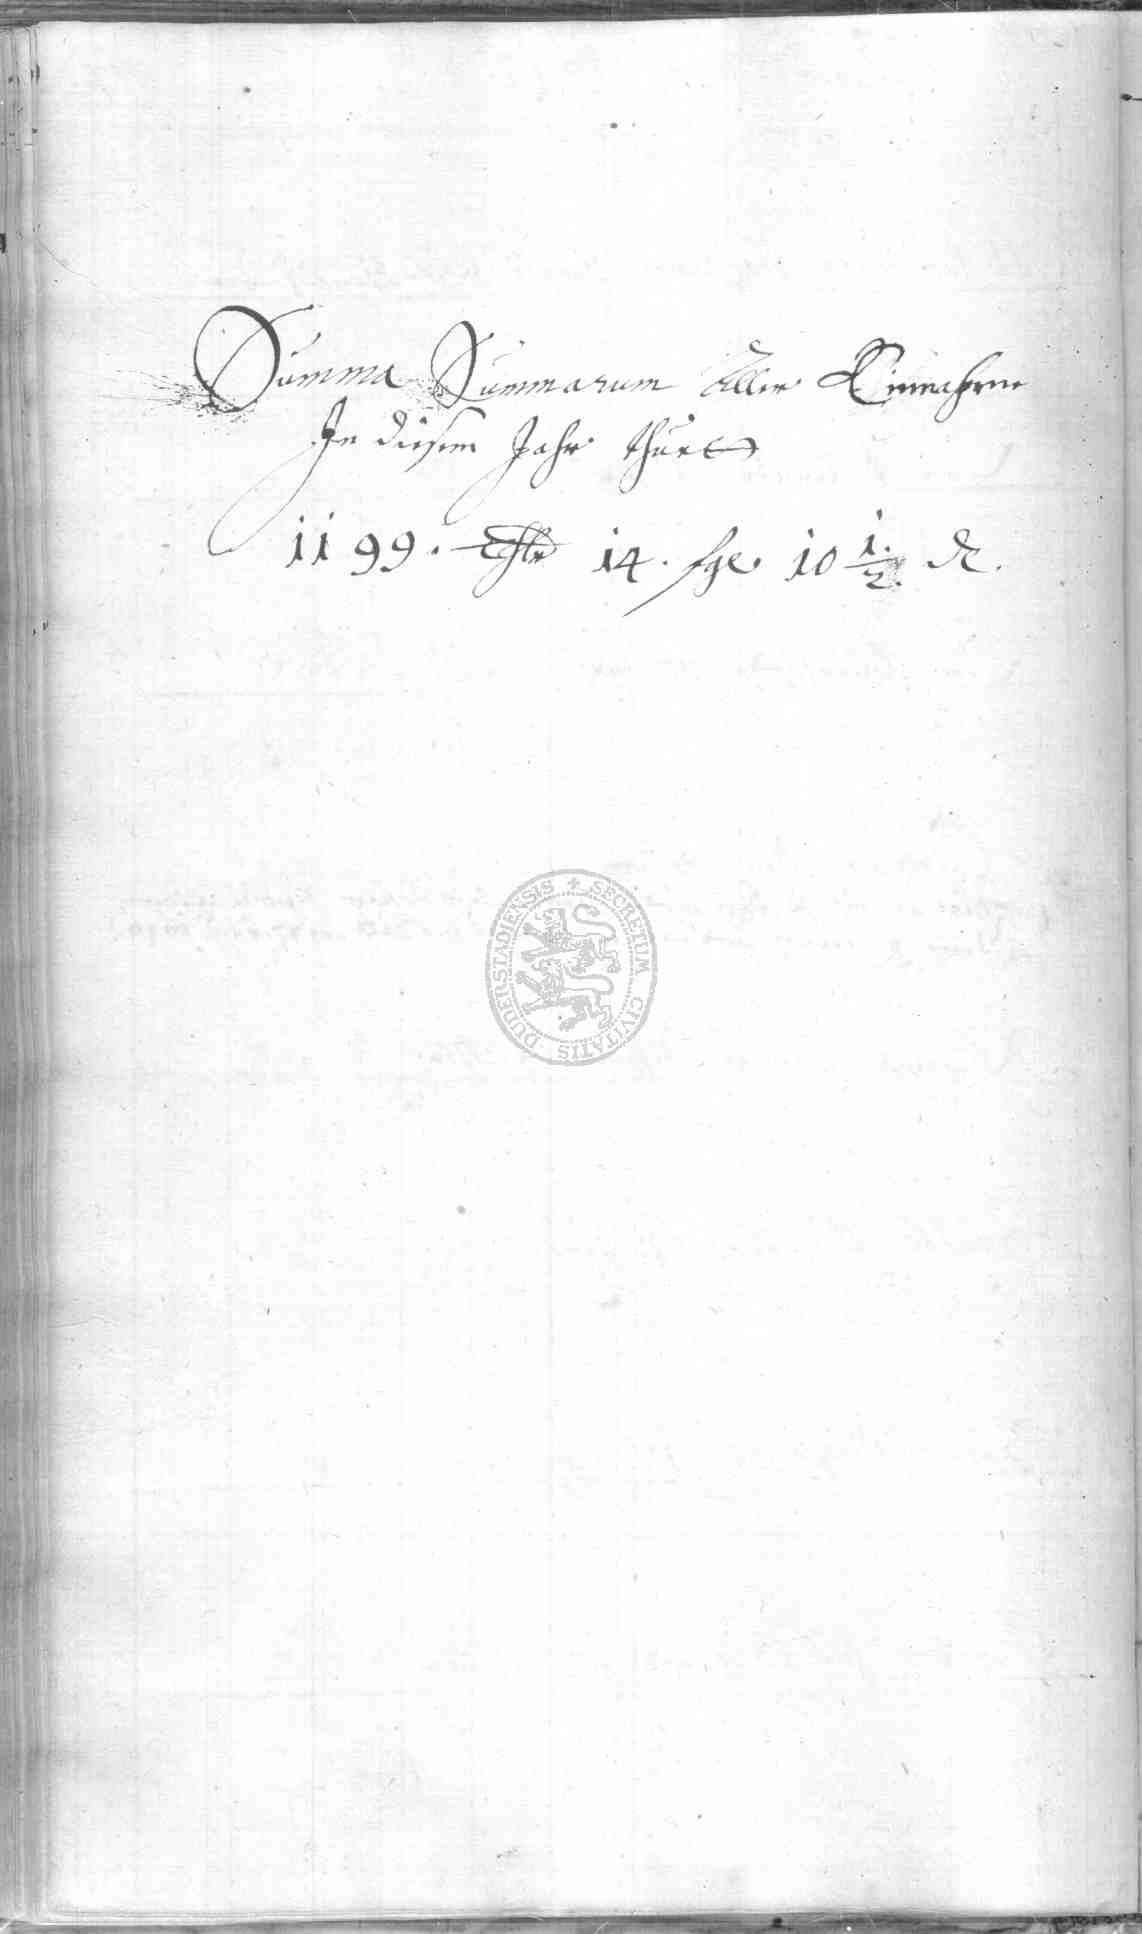 Summa Summarum Aller Einnahme
In diesem Jahr thuet
1199. Thlr 14. sgl. 10 1/2. d.
SECRETUM CIVITATIS DUDERSTADIENSIS